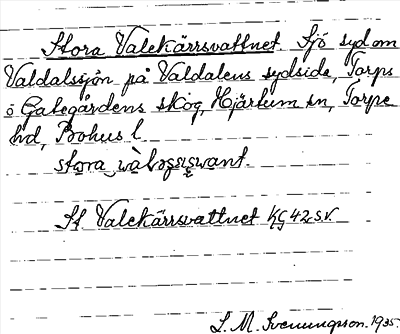 Stora Valekärrsvattnet. Sjö syd om
Valdalssjön på Valdalens sydside, Torps
o Gategårdens skog, Hjärtum sn, Torpe
hd, Bohus l
stora
St. Valekärrsvattnet KG 42 SV.
L. M. Svenungsson. 1935.